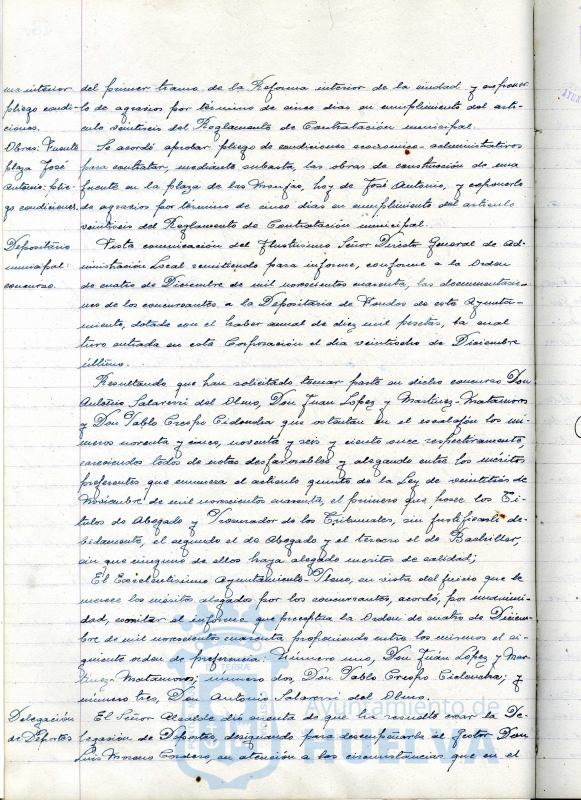 ma interior
pliego condi-
ciones.
del primer tramo de la Reforma interior de la ciudad y exponer-
lo de agravios por término de cinco días en cumplimiento del artí-
culo veintiseis del Reglamento de Contratación municipal.
Obras: Fuente
plaza José
Antonio: plie-
go condiciones.
Se acordó aprobar pliego de condiciones económico-administrativas
para contratar, mediante subasta, las obras de construcción de una
fuente en la plaza de las Monjas, hoy de José Antonio, y exponerlo
de agravios por término de cinco días en cumplimiento del artículo
veintiseis del Reglamento de Contratación municipal.
Depositario
municipal:
concurso.
Vista comunicación del Ilustrísimo Señor Director General de Ad-
ministración Local remitiendo para informe, conforme a la Orden
de cuatro de Diciembre de mil novecientos cuarenta, las documentacio-
nes de los concursantes a la Depositaría de Fondos de este Ayunta-
miento, dotada con el haber anual de diez mil pesetas, la cual
tuvo entrada en esta Corporación el día veintiocho de Diciembre
último.
Resultando que han solicitado tomar parte en dicho concurso Don
Antonio Salarerri del Olmo, Don Juan Lopez y Martinez-Matamoros
y Don Pablo Crespo Cidoncha que ostentan en el escalafón los nú-
meros noventa y cinco, noventa y seis y ciento once respectivamente,
careciendo todos de notas desfavorables y alegando entre los méritos
preferentes que enumera el artículo quinto de la Ley de veintitrés de
Noviembre de mil novecientos cuarenta, el primero que posee los Tí-
tulos de Abogado y Procurador de los Tribunales, sin justificarlo de-
bidamente, el segundo el de Abogado y el tercero el de Bachiller,
sin que ninguno de ellos haya alegado méritos de calidad;
El Excelentísimo Ayuntamiento Pleno, en vista del juicio que le
merece los méritos alegados por los concursantes, acordó, por unanimi-
dad, emitir el informe que preceptúa la Orden de cuatro de Diciem-
bre de mil novecientos cuarenta proponiendo entre los mismos el si-
guiente orden de preferencia: Número uno, Don Juan Lopez y Mar-
tinez Matamoros; número dos, Don Pablo Crespo Cidoncha; y
número tres, Don Antonio Salarerri del Olmo.
Delegación
de Deportes
El Señor Alcalde dió cuenta de que ha resuelto crear la De-
legación de Deportes, designando para desempeñarla al Gestor Don
Luis Moreno Cordero, en atención a las circunstancias que en el
Ayuntamiento de
HUELVA